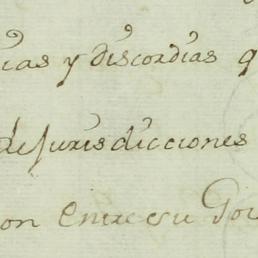 cias y discordias q
de Jurisdicciones
on entre su Gov